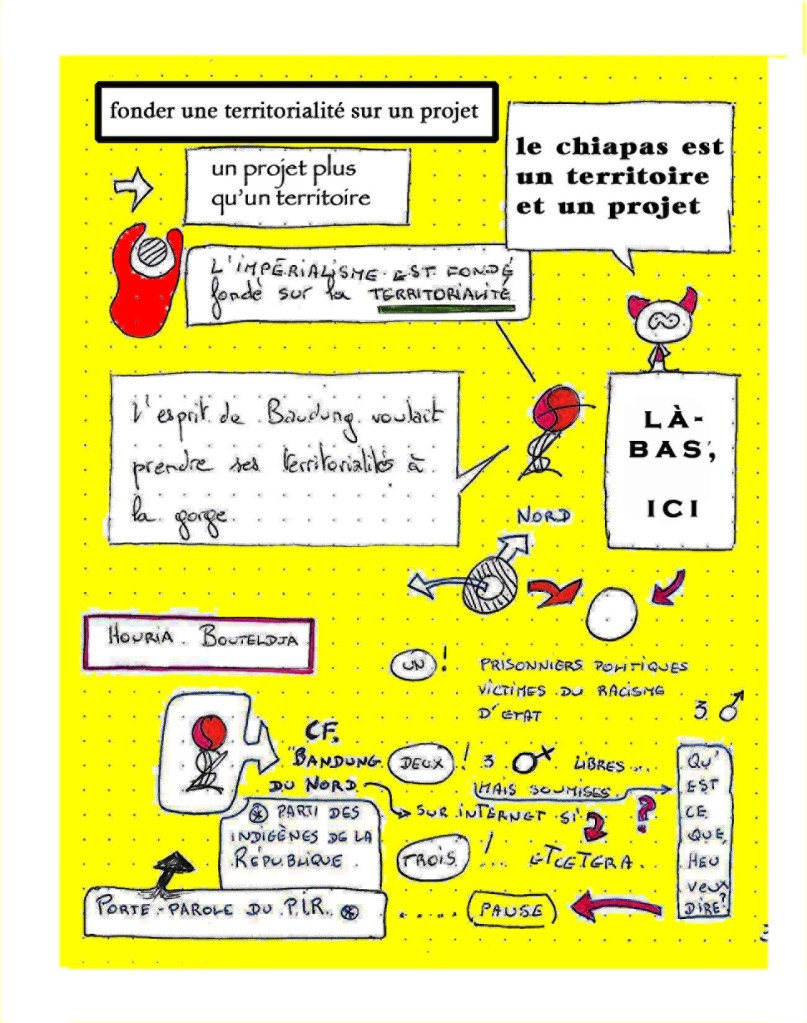 fonder une territorialité sur un projet
le chiapas est
un territoire
et un projet
un projet plus
qu'un territoire
L'IMPÉRIALISME EST FONDÉ
fondé sur la TERRITORIALITÉ
L'esprit de Baudung voulait
prendre ses territorialités à
la gorge
LÀ-
BAS,
ICI
NORD
HOURIA BOUTELDJA
UN !
PRISONNIERS POLITIQUES
VICTIMES DU RACISME
D'ETAT
3
CF.
"BANDUNG
DU NORD
DEUX ! 3 LIBRES...
MAIS SOUMISES
SUR INTERNET SI
?
TROIS ! ... ETCETERA.
QU'
EST
CE
QUE,
HEU
VEUX
DIRE?
* PARTI DES
INDIGÈNES DE LA
RÉPUBLIQUE
PORTE-PAROLE DU P.I.R. *
..... PAUSE